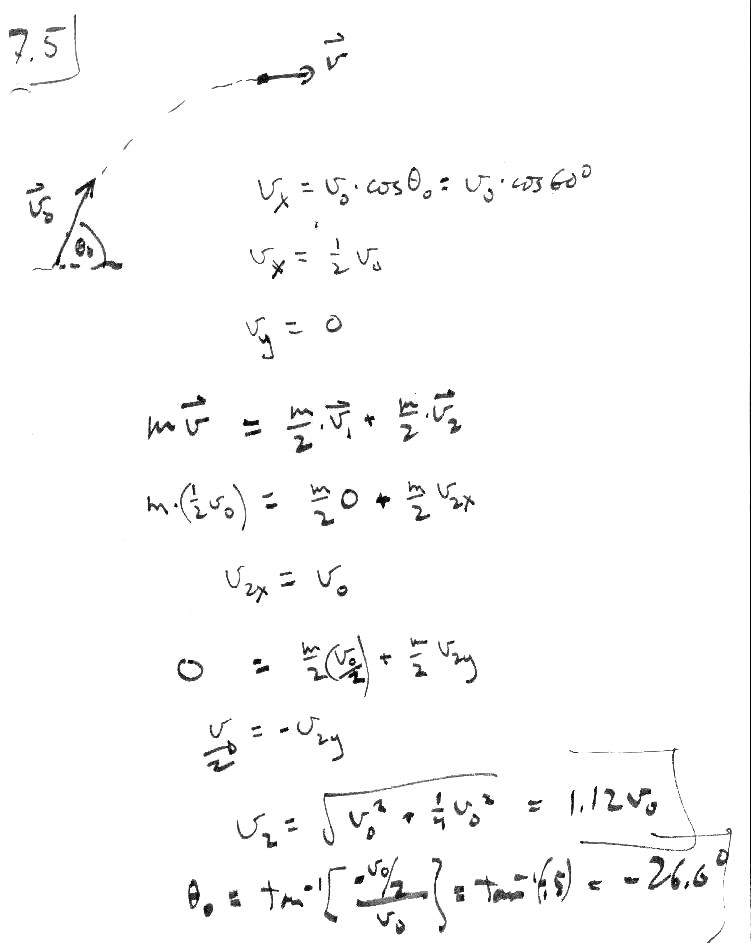 7.5
v⃗
v⃗₀
θ₀
vₓ = v₀·cosθ₀ = v₀·cos60°
vₓ = ½ v₀
v_y = 0
mv⃗ = m/2·v⃗₁ + m/2·v⃗₂
m·(½v₀) = m/2 0 + m/2 v₂ₓ
v₂ₓ = v₀
0 = m/2(v₀/2) + m/2 v₂y
= -v₂y
v₂ = √(v₀² + ¼v₀²) = 1.12v₀
θ₀ = tan⁻¹[(-v₀/2)/v₀] = tan⁻¹(.5) = -26.6°